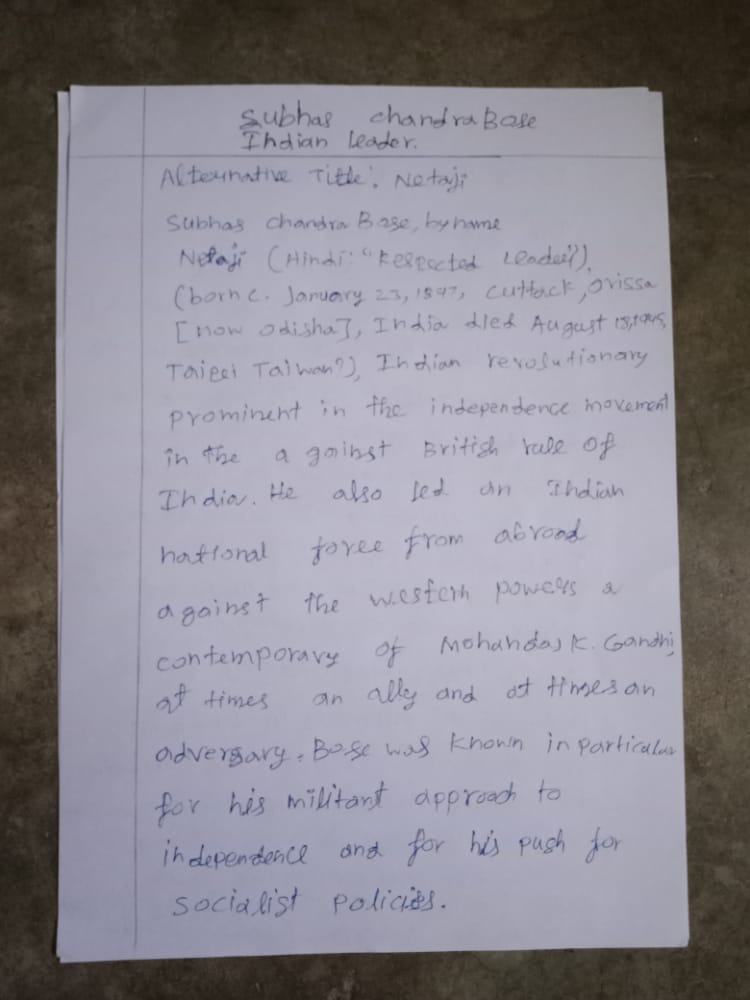 Subhas chandra Bose
Indian leader.
Alternative Title: Netaji
Subhas chandra Bose, by name
Netaji (Hindi: "Respected Leader"),
(born c. January 23, 1897, Cuttack, Orissa
[now odisha], India died August 18, 1945,
Taipei Taiwan?), Indian revolutionary
prominent in the independence movement
in the a gainst British rule of
India. He also led an Indian
national force from abroad
against the western powers a
contemporary of Mohandas K. Gandhi,
at times an ally and at times an
adversary. Bose was known in particular
for his militant approach to
independence and for his push for
socialist policies.